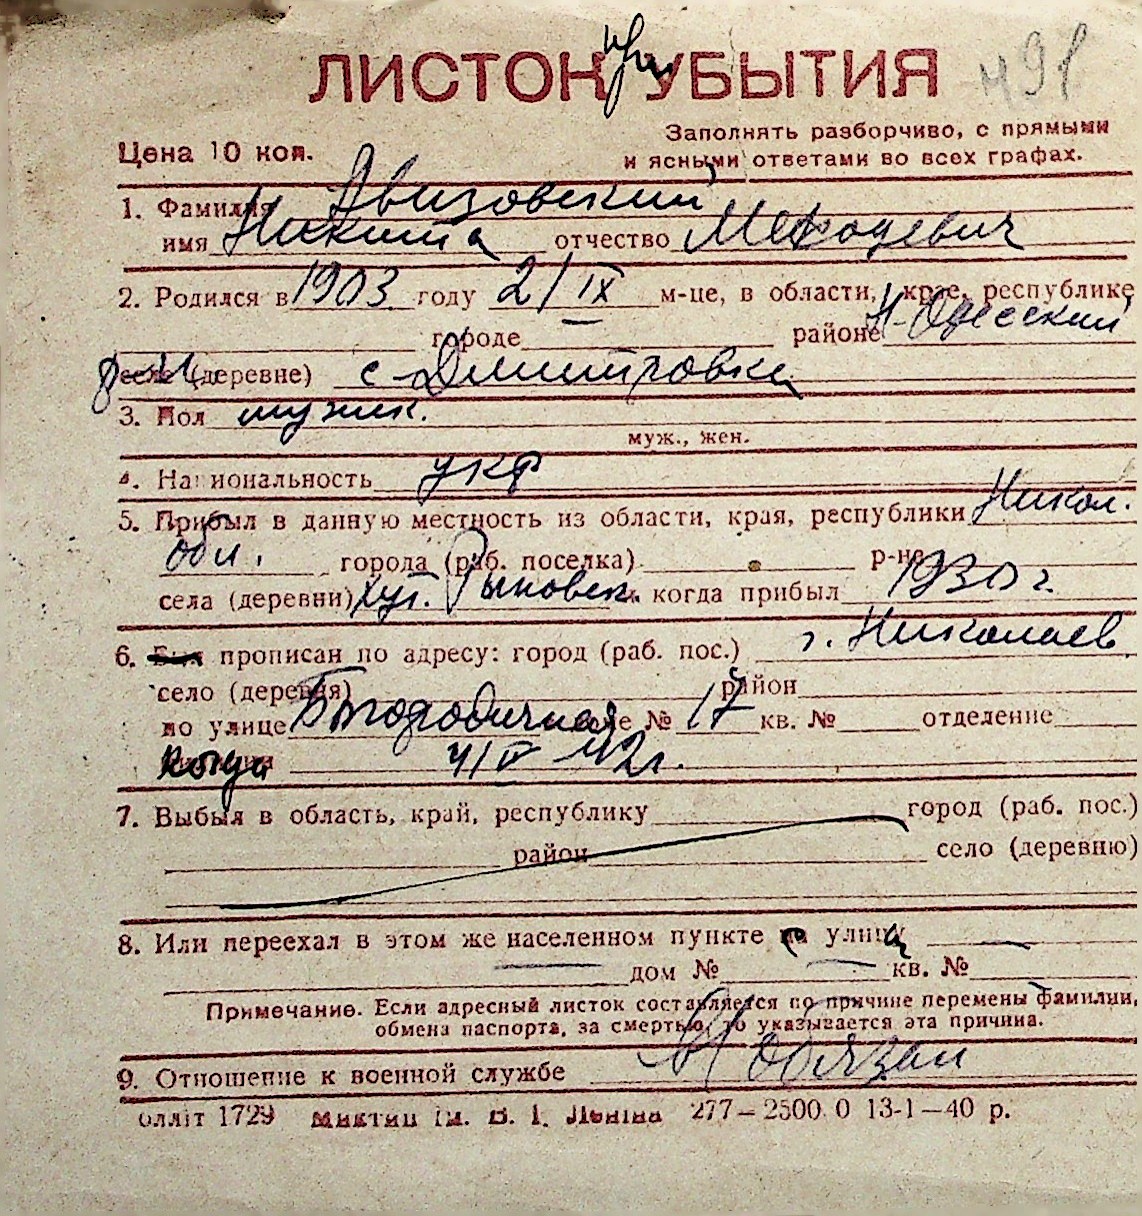 ЛИСТОК при УБЫТИЯ 491
Заполнять разборчиво, с прямыми
Цена 10 коп. и ясными ответами во всех графах.
1. Фамилия Авизовский
имя Никита отчество Мефодевич
2. Родился в 1903 году 2/IX м-це, в области, крае, республике
городе районе Н-Одесский
р-н. селе (деревне) с-Дмитровка
3. Пол мужик.
муж., жен.
4. Национальность укр
5. Прибыл в данную местность из области, края, республики Никол.
обл. города (раб. поселка) р-на
села (деревни) хут. Рыновск. когда прибыл 1930 г.
6. Был прописан по адресу: город (раб. пос.) г. Николаев
село (деревня) район
по улице Богородичная доме № 17 кв. № отделение
когда 4/IV-42г.
7. Выбыл в область, край, республику город (раб. пос.)
район село (деревню)
8. Или переехал в этом же населенном пункте с улицы
дом № кв. №
Примечание. Если адресный листок составляется по причине перемены фамилии,
обмена паспорта, за смертью, то указывается эта причина.
9. Отношение к военной службе Н обязан
Обллiт 1729 Миктип iм. В. I. Ленiна 277—2500.0 13-1—40 р.